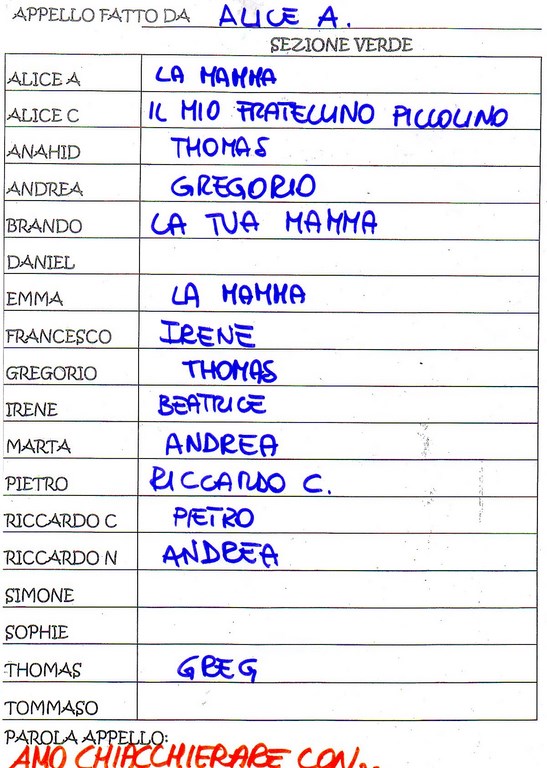 APPELLO FATTO DA ALICE A.
SEZIONE VERDE
ALICE A LA MAMMA
ALICE C IL MIO FRATELLINO PICCOLINO
ANAHID THOMAS
ANDREA GREGORIO
BRANDO LA TUA MAMMA
DANIEL
EMMA LA MAMMA
FRANCESCO IRENE
GREGORIO THOMAS
IRENE BEATRICE
MARTA ANDREA
PIETRO RICCARDO C.
RICCARDO C PIETRO
RICCARDO N ANDREA
SIMONE
SOPHIE
THOMAS GREG
TOMMASO
PAROLA APPELLO:
AMO CHIACCHIERARE CON...